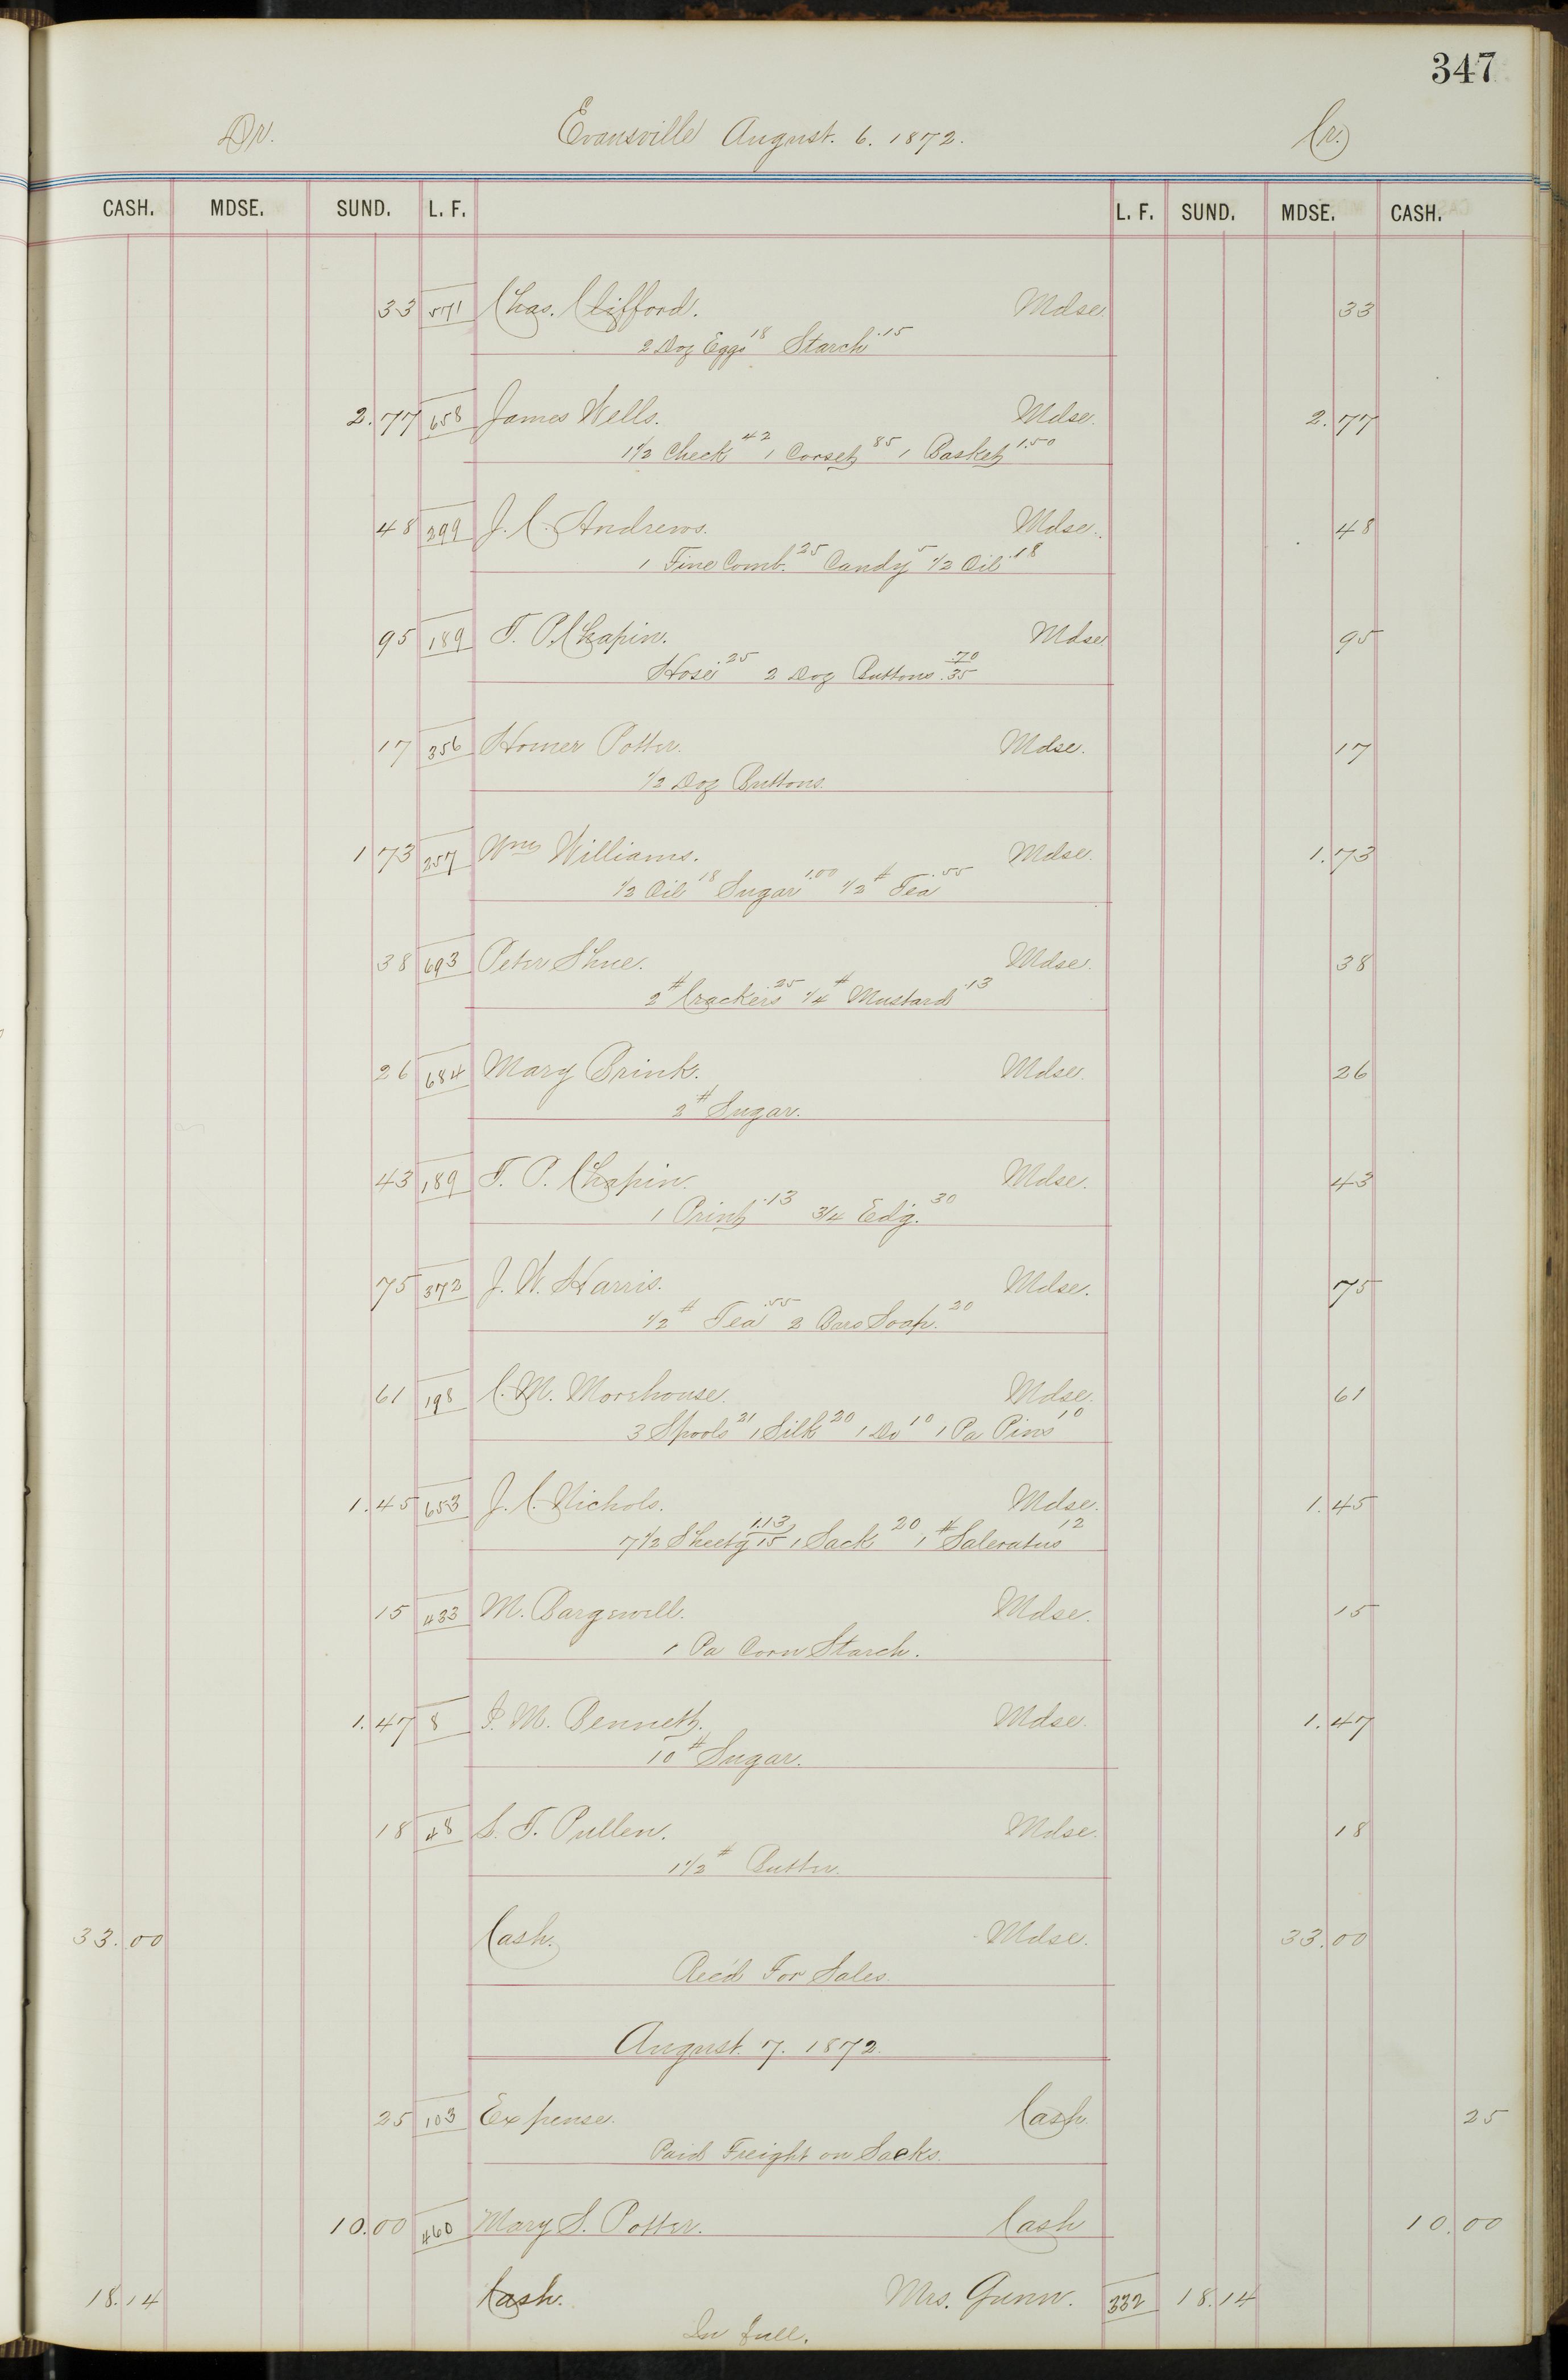 347
Dr. Evansville August. 6. 1872. Cr.
CASH. MDSE. SUND. L. F. L. F. SUND. MDSE. CASH.
33 571 Chas. Clifford. Mdse 33
2 Doz Eggs 18 Starch .15
2.77 658 James Wells. Mdse. 2.77
1 1/2 Check 42 1 Corset 85 1 Basket 1.50
48 299 J. C. Andrews. Mdse. 48
1 Fine Comb. 25 Candy 5 1/2 Oil .18
95 189 T. P. Chapin. Mdse 95
Hose 25 2 Doz Buttons .70/35
17 356 Homer Potter. Mdse. 17
1/2 Doz Buttons.
1 73 257 Wm Williams. Mdse. 1.73
1/2 Oil 18 Sugar 1.00 1/2 # Tea .55
38 693 Peter Shue. Mdse. 38
2 # Crackers .25 1/4 # Mustard .13
26 684 Mary Brink. Mdse. 26
2 # Sugar.
43 189 T. P. Chapin. Mdse. 43
1 Print .13 3/4 Edg. 30
75 372 J. W. Harris. Mdse. 75
1/2 # Tea .55 2 Bars Soap. 20
61 198 C. M. Morehouse. Mdse. 61
3 Spools 21 1 Silk 20 1 Do 10 1 Pa Pins 10
1.45 653 J. C. Nichols. Mdse. 1.45
7 1/2 Sheetg 1.13/15 1 Sack 20 1 # Saleratus 12
15 433 M. Bargewell. Mdse. 15
1 Pa Corn Starch.
1.47 8 I. M. Bennett. Mdse. 1.47
10 # Sugar.
18 48 S. T. Pullen. Mdse. 18
1 1/2 # Butter.
33.00 Cash. Mdse. 33.00
Rec'd For Sales.
August. 7. 1872.
25 103 Expense. Cash 25
Paid Freight on Sacks.
10.00 460 Mary S. Potter. Cash 10.00
18.14 Cash. Mrs. Gunn. 332 18.14
In full.